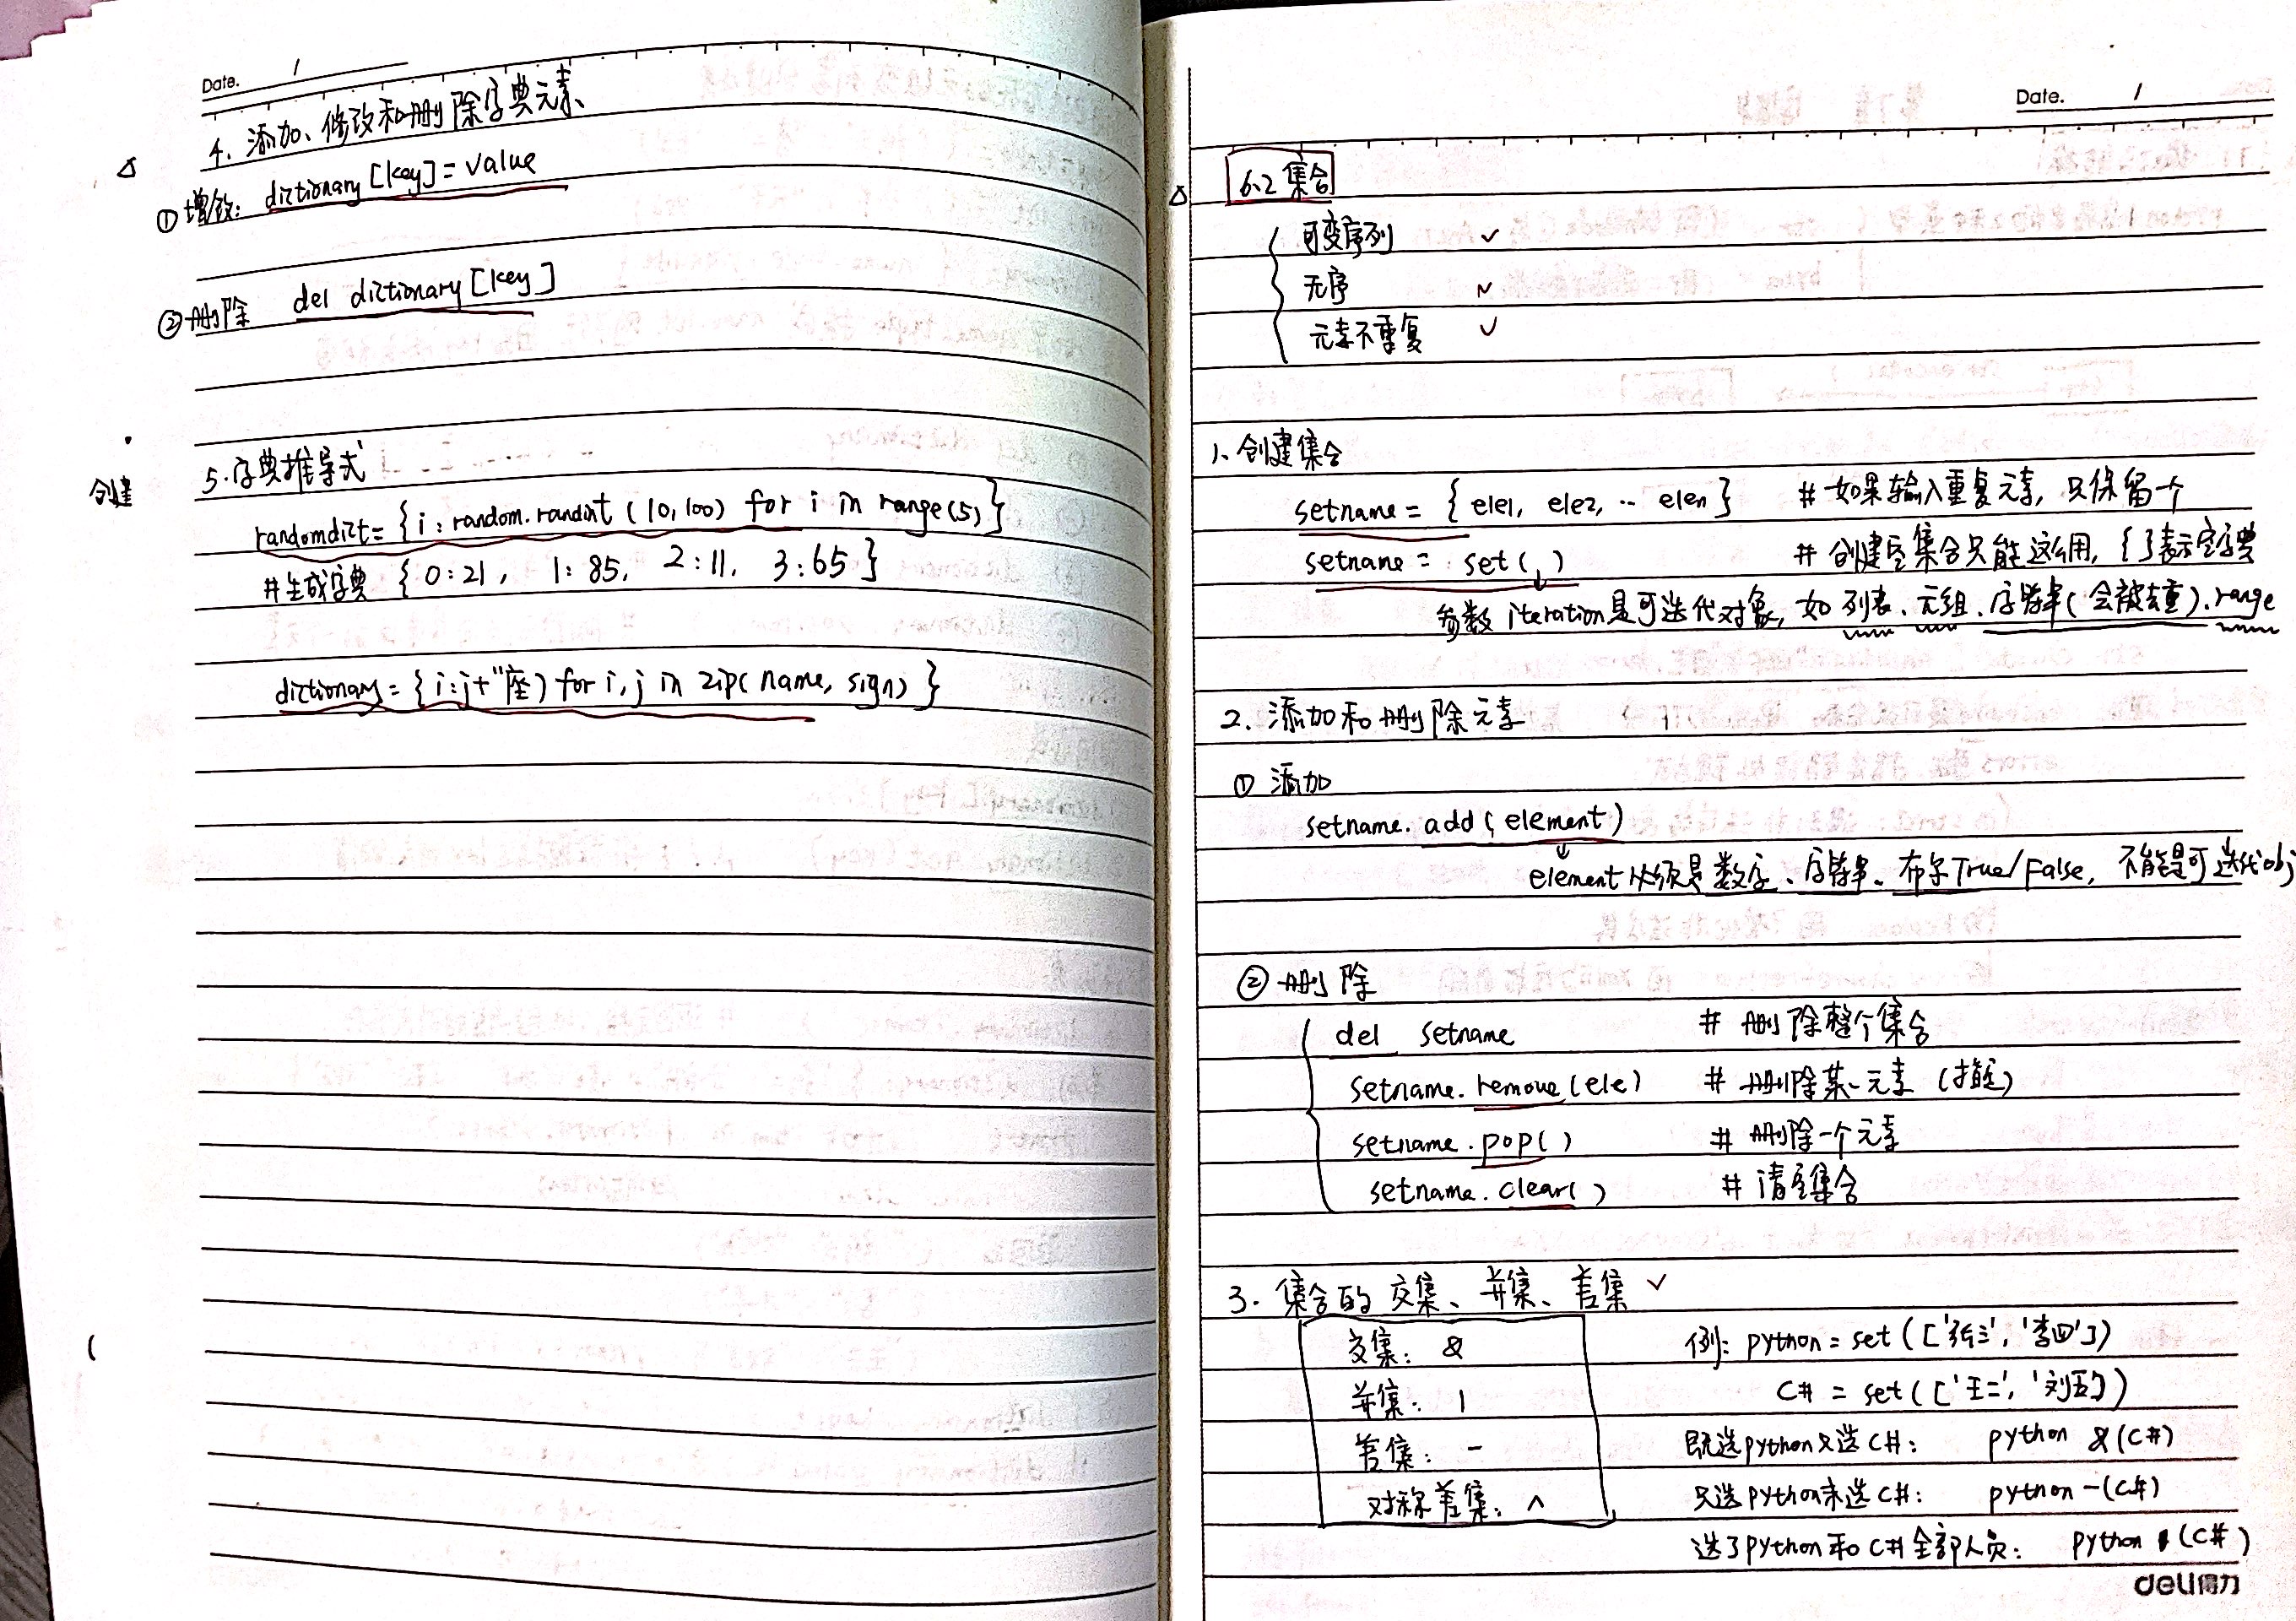 Date. /
4. 添加、修改和删除字典元素
① 增改: dictionary[key]=value
② 删除 del dictionary[key]
创建
5.字典推导式
randomdict={i:random.randint(10,100) for i in range(5)}
#生成字典 {0:21, 1:85, 2:11, 3:65}
dictionary={i:j+"座) for i,j in zip(name,sign)}
Date. /
6.2 集合
可变序列 ✓
无序 ✓
元素不重复 ✓
1. 创建集合
setname = {ele1, ele2, … elen} # 如果输入重复元素, 只保留一个
setname = set() # 创建空集合只能这个用, {}表示空字典
参数 iteration是可迭代对象, 如 列表、元组、字符串(会被去重).range
2. 添加和删除元素
① 添加
setname.add(element)
element必须是数字、字符串、布尔True/False, 不能是可迭代obj
② 删除
del setname # 删除整个集合
setname.remove(ele) # 删除某一元素 (指定)
setname.pop() # 删除一个元素
setname.clear() # 清空集合
3. 集合的 交集、并集、差集 ✓
交集: &
并集: |
差集: -
对称差集: ^
例: python = set(['张三', '李四'])
C# = set(['王二', '刘五'])
既选python又选C#: python &(C#)
只选python未选C#: python -(C#)
选了python和C#全部人员: python | (C#)
deli得力